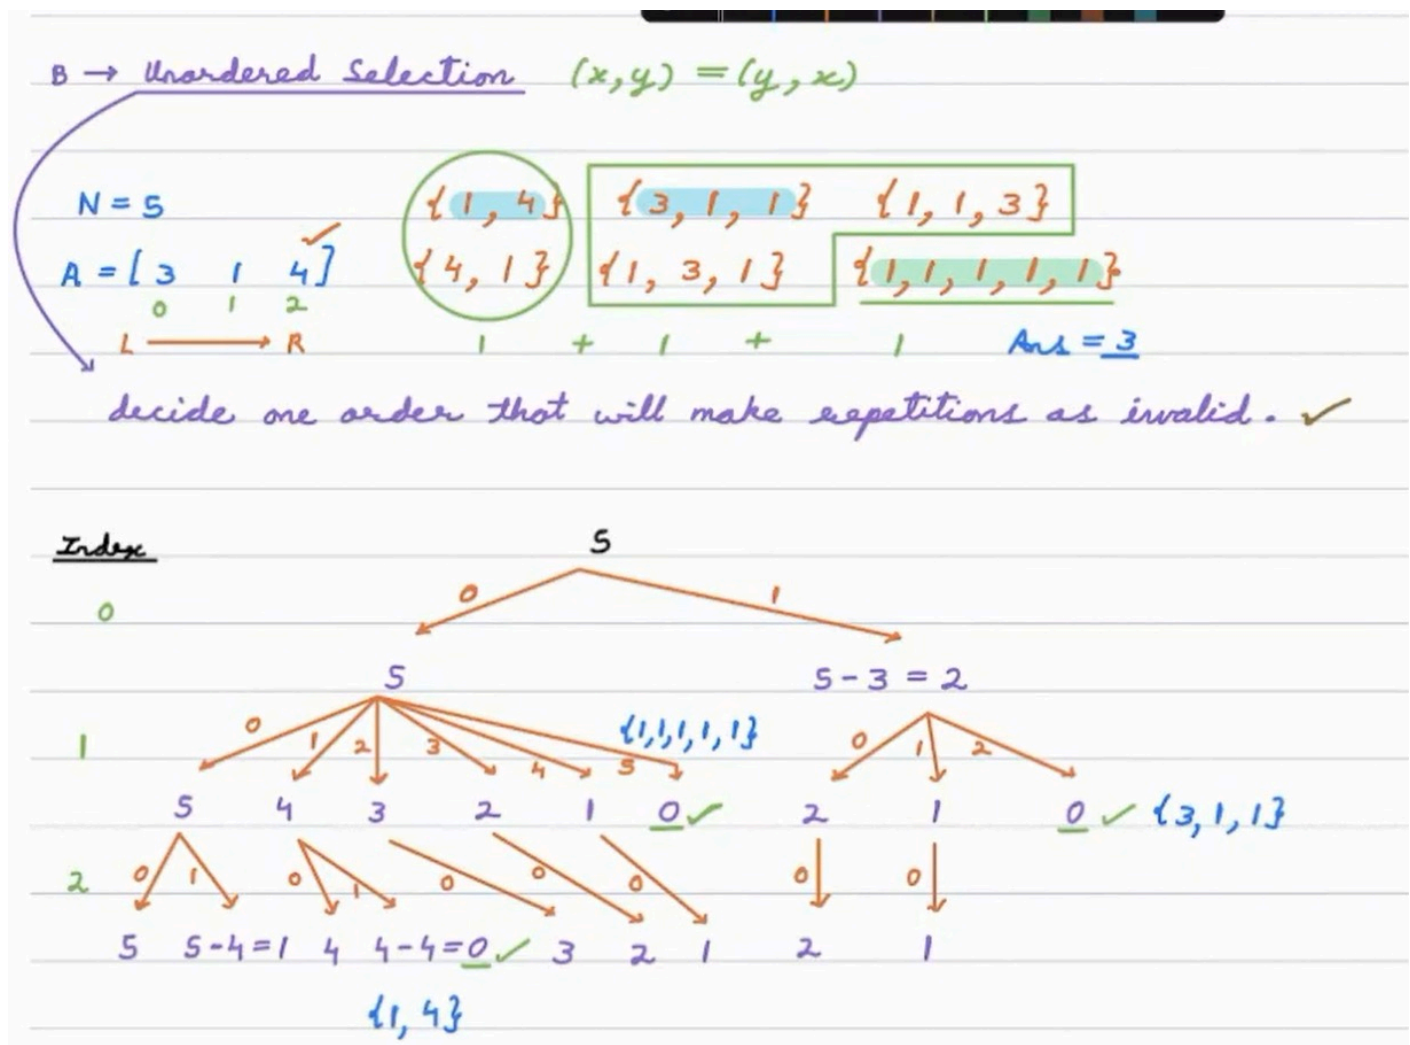 B → Unordered Selection (x,y) = (y,x)
N = 5 {1, 4} {3, 1, 1} {1, 1, 3}
A = [ 3 1 4] {4, 1} {1, 3, 1} {1, 1, 1, 1, 1}
0 1 2
L → R 1 + 1 + 1 Ans = 3
decide one order that will make repetitions as invalid. ✓
Index 5
0 0 1
5 5 - 3 = 2
1 0 1 2 3 4 5 {1,1,1,1,1} 0 1 2
5 4 3 2 1 0 ✓ 2 1 0 ✓ {3, 1, 1}
2 0 1 0 1 0 0 0 0 0
5 5-4=1 4 4-4=0 ✓ 3 2 1 2 1
{1, 4}